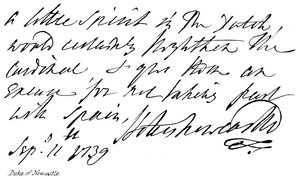 a little spirit in the Dutch,
would certainly frighten the
Cardinal, & give them an
excuse, for not taking part
with Spain,
Holles Newcastle
Sepr. 11th 1739
Duke of Newcastle.